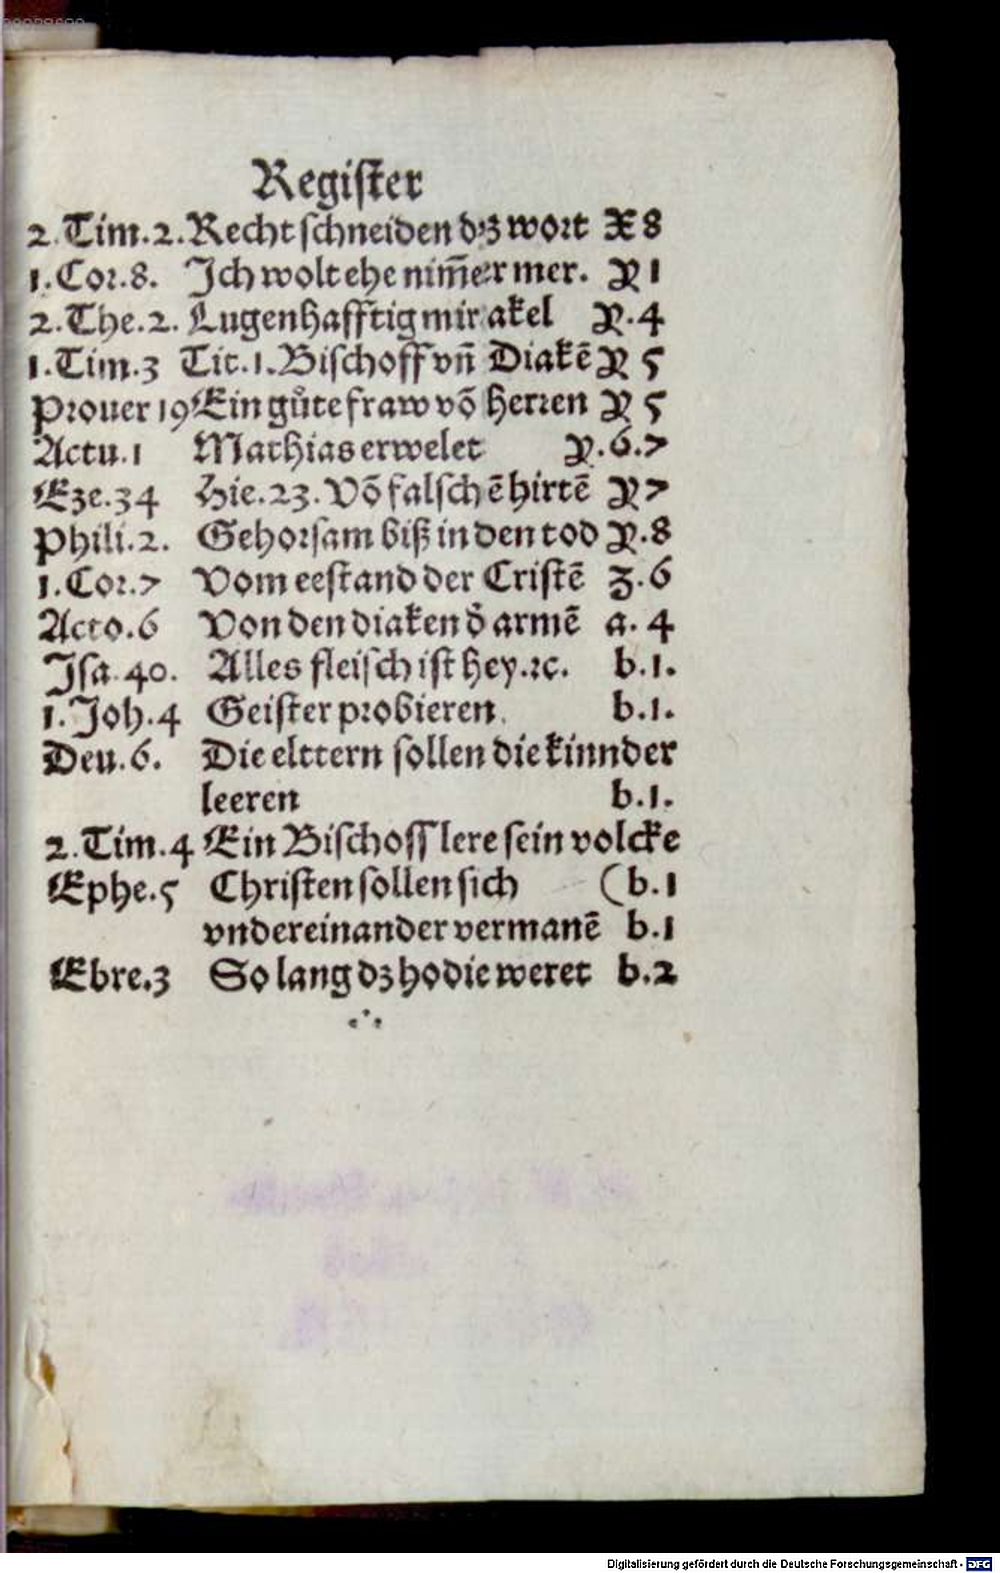 Regiſter
2. Tim. 2. Recht ſchneiden dꝫ wort X 8
1. Cor. 8. Ich wolt ehe nim̄er mer. Y 1
2. The. 2. Lugenhafftig mirakel Y. 4
1. Tim. 3 Tit. 1. Biſchoff vn̄ Diakē Y 5
Prouer 19 Ein gůte fraw võ herren Y 5
Actu. 1 Mathias erwelet Y. 6. 7
Eze. 34 Hie. 23. Võ falſchē hirtē Y 7
Phili. 2. Gehorſam biß in den tod Y. 8
1. Cor. 7 Vom eeſtand der Criſtē Z. 6
Acto. 6 Von den diaken d̕ armē a. 4
Iſa. 40. Alles fleiſch iſt hey. ꝛc. b. 1.
1. Joh. 4 Geiſter probieren. b. 1.
Deu. 6. Die elttern ſollen die kinnder
leeren b. 1.
2. Tim. 4 Ein Biſchoff lere ſein volcke
Ephe. 5 Chriſten ſollen ſich (b. 1
vndereinander vermanē b. 1
Ebre. 3 So lang dꝫ hodie weret b. 2
Digitalisierung gefördert durch die Deutsche Forschungsgemeinschaft - DFG